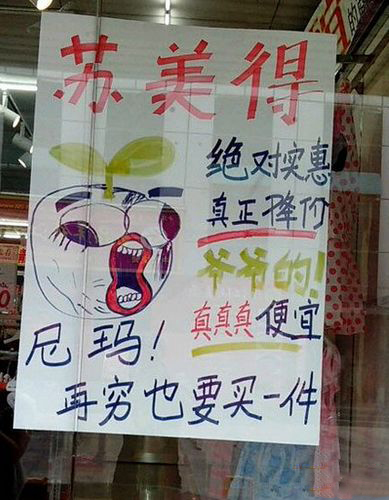 苏美得
绝对实惠
真正降价
爷爷的!
真真真便宜
尼玛!
再穷也要买一件